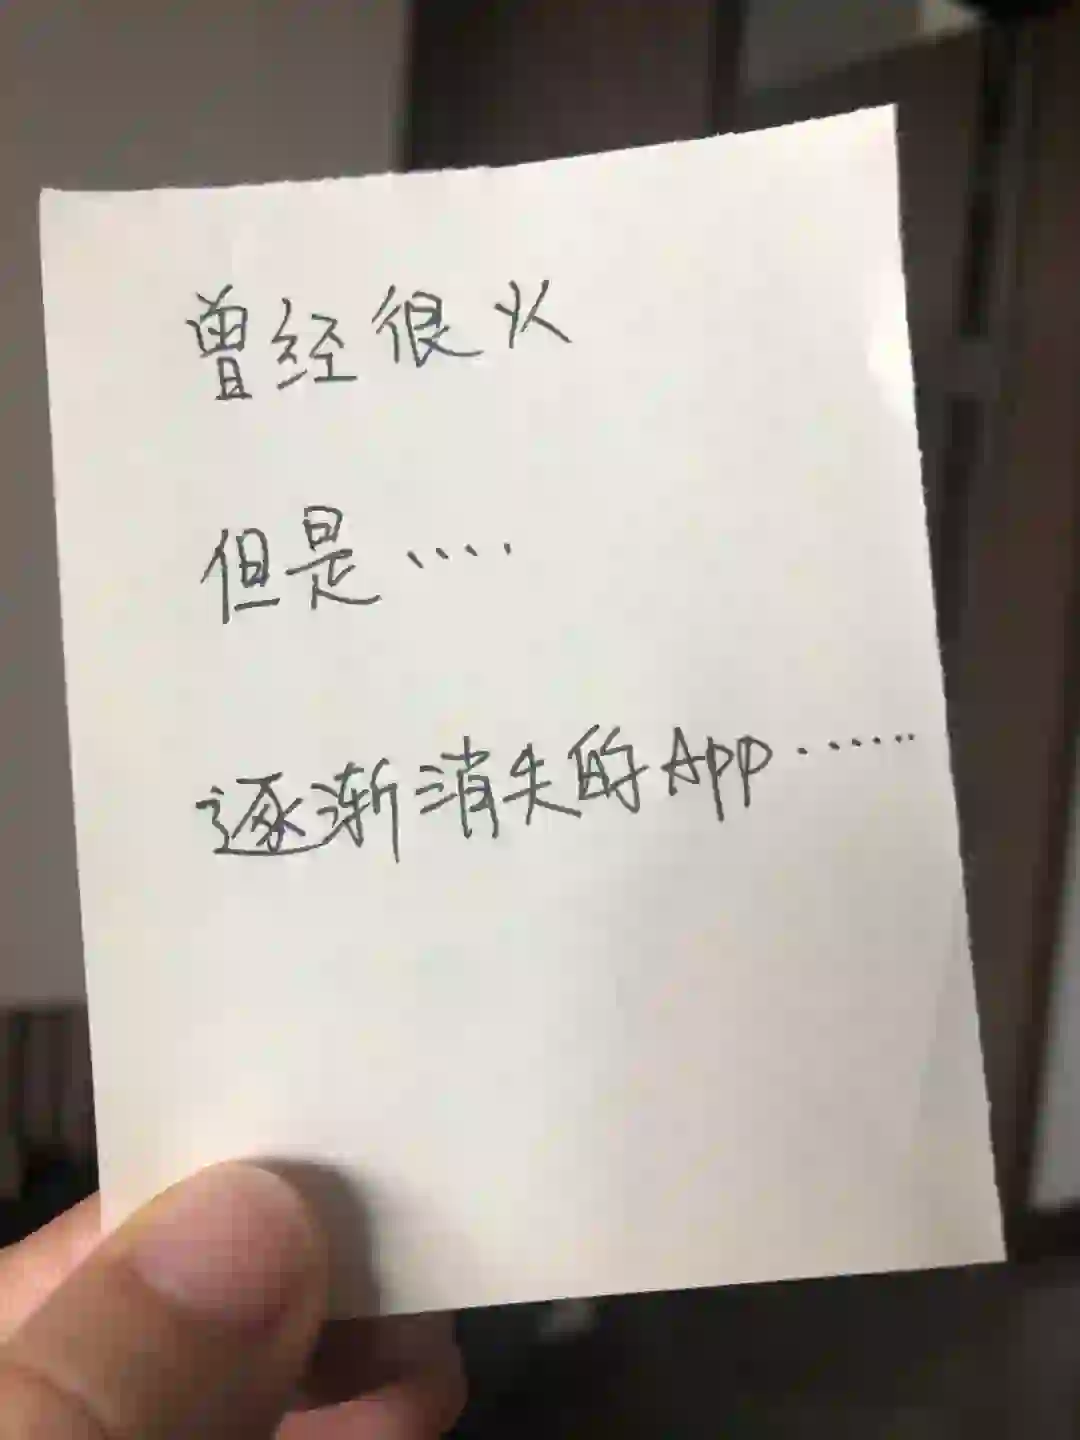 曾经很火
但是····
逐渐消失的App······